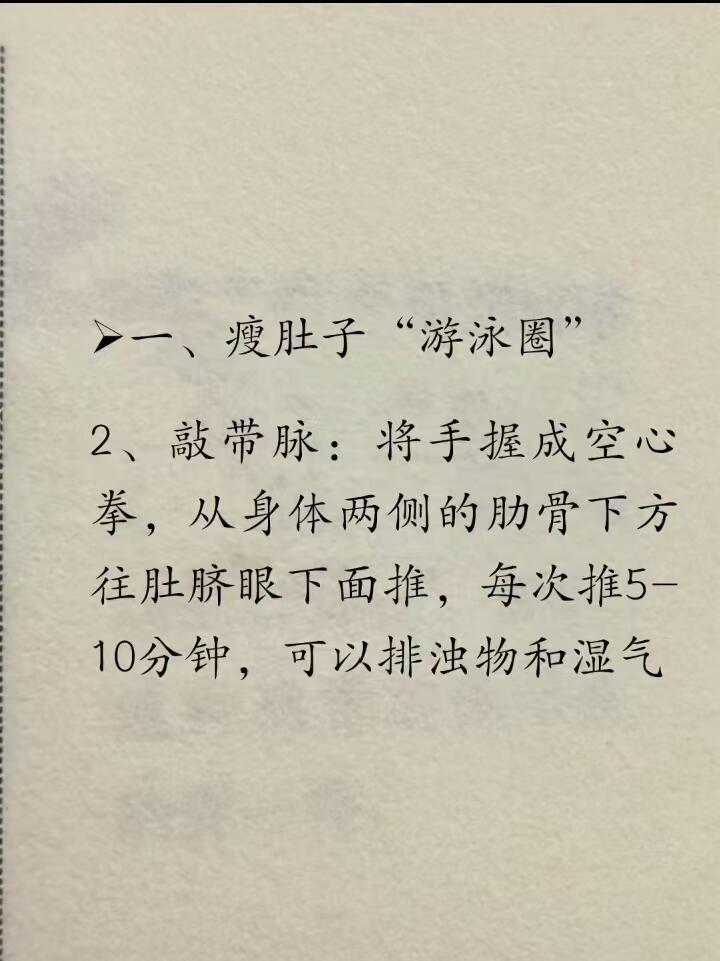 ➢一、瘦肚子“游泳圈”
2、敲带脉：将手握成空心
拳，从身体两侧的肋骨下方
往肚脐眼下面推，每次推5-
10分钟，可以排浊物和湿气